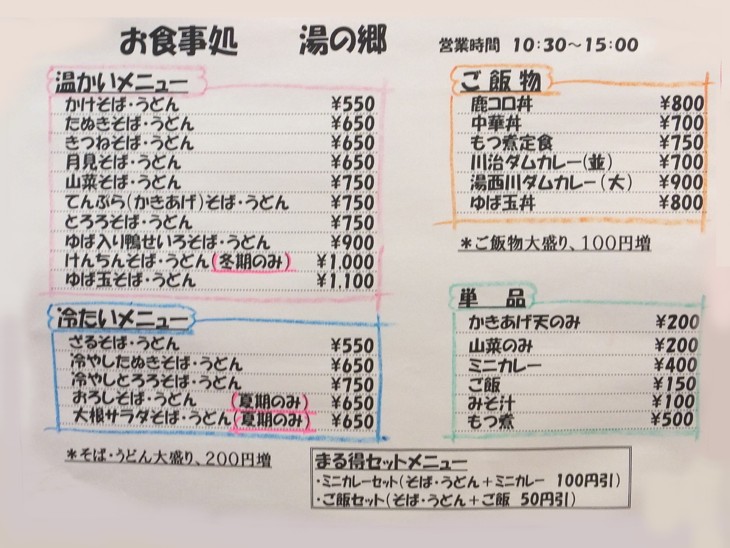 お食事処 湯の郷 営業時間 10:30～15:00
温かいメニュー
かけそば・うどん ¥550
たぬきそば・うどん ¥650
きつねそば・うどん ¥650
月見そば・うどん ¥650
山菜そば・うどん ¥750
てんぷら(かきあげ)そば・うどん ¥750
とろろそば・うどん ¥750
ゆば入り鴨せいろそば・うどん ¥900
けんちんそば・うどん(冬期のみ) ¥1,000
ゆば玉そば・うどん ¥1,100
冷たいメニュー
ざるそば・うどん ¥550
冷やしたぬきそば・うどん ¥650
冷やしとろろそば・うどん ¥750
おろしそば・うどん (夏期のみ) ¥650
大根サラダそば・うどん(夏期のみ) ¥650
*そば・うどん大盛り、200円増
ご飯物
鹿コロ丼 ¥800
中華丼 ¥700
もつ煮定食 ¥750
川治ダムカレー(並) ¥700
湯西川ダムカレー(大) ¥900
ゆば玉丼 ¥800
*ご飯物大盛り、100円増
単品
かきあげ天のみ ¥200
山菜のみ ¥200
ミニカレー ¥400
ご飯 ¥150
みそ汁 ¥100
もつ煮 ¥500
まる得セットメニュー
・ミニカレーセット(そば・うどん+ミニカレー 100円引)
・ご飯セット(そば・うどん+ご飯 50円引)